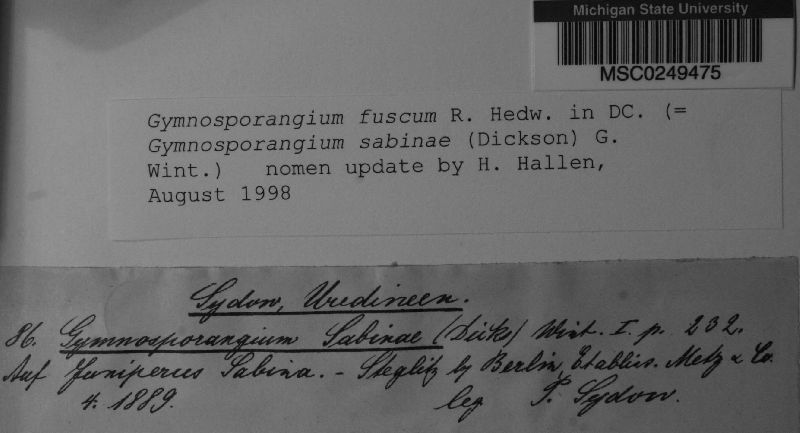 Michigan State University
MSC0249475
Gymnosporangium fuscum R. Hedw. in DC. (=
Gymnosporangium sabinae (Dickson) G.
Wint.) nomen update by H. Hallen,
August 1998
Sydow, Uredineen.
86. Gymnosporangium Sabinae (Dicks) Wint. I. p. 232.
Auf Juniperus Sabina. - Steglitz by Berlin, Etabliss. Metz & Co.
4. 1889. leg P. Sydow.